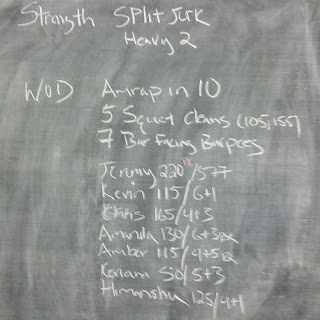 Strength Split Jerk
Heavy 2
WOD Amrap in 10
5 Squat Cleans (105,155)
7 Bar Facing Burpees
Jeremy 220 /5+7
Kevin 115/6+1
Chris 165/4+3
Amanda 130/6+3
Amber 115/4+5
Kenam 50/5+3
Himanshu 125/4+1